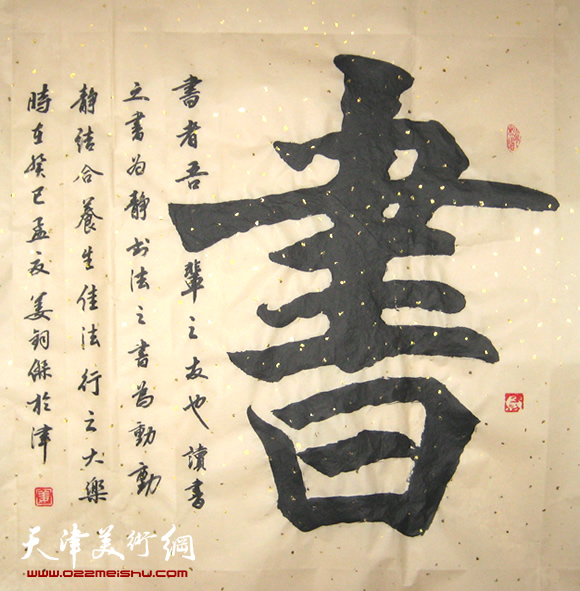 書
書者吾輩之友也讀書
之書为靜书法之書为動動
靜结合養生佳法行之大樂
時在癸巳孟夏姜钧傑於津
天津美術網
www.022meishu.com